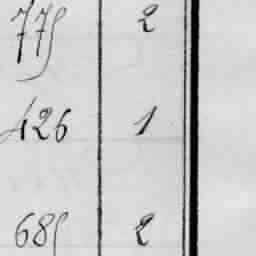 775 2
426 1
685 2